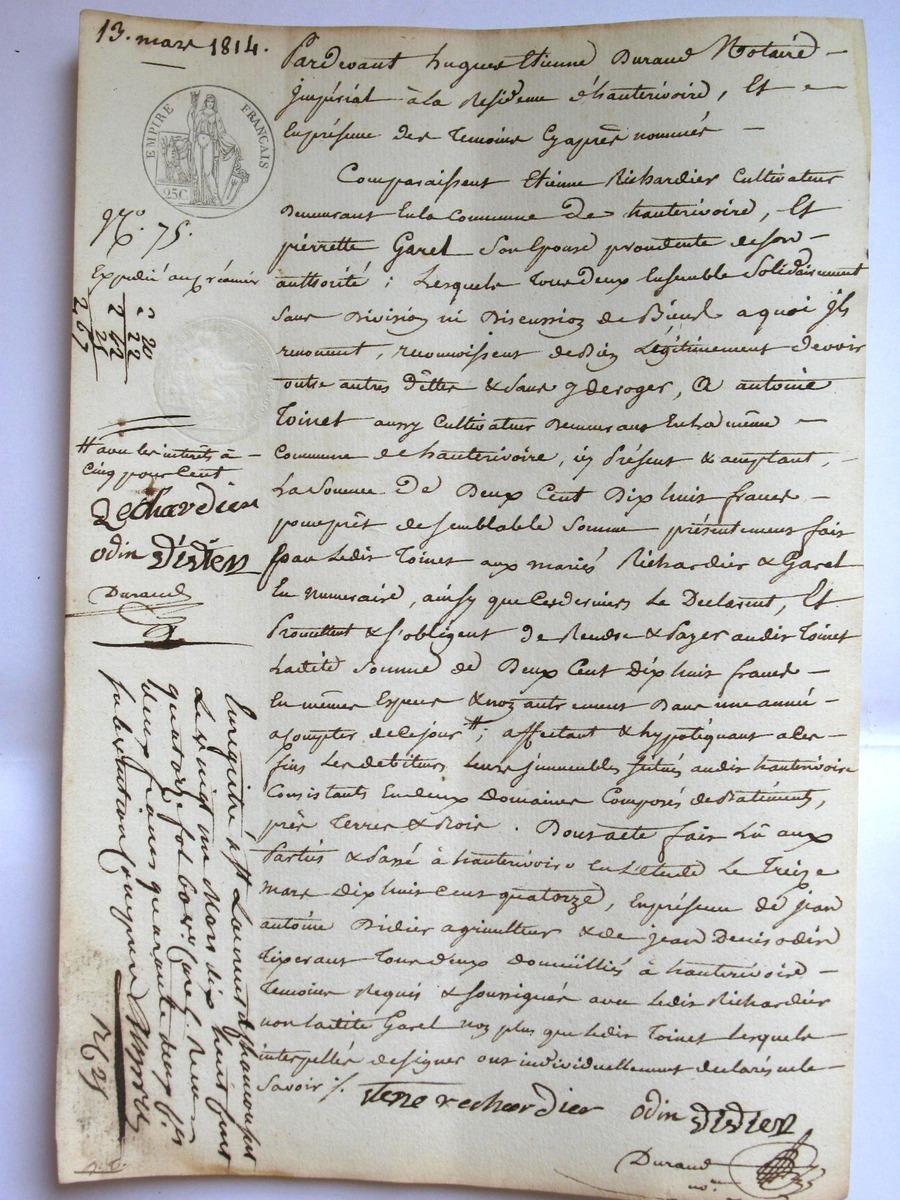 13. mars 1814.
EMPIRE FRANÇAIS
25C
N.° 75.
Expedié au créancier
2 20
22
2 42
25
2 67
# avec les interêts à
cinq pour cent
Rechardier
odin Didier
Durand
Pardevant hugues Etienne Durand Notaire
Impérial à la Residence d'hauterivoire, Et
En présence des Temoins Cy après nommés
Comparaissent Etienne Richardier Cultivateur
Demeurant En la Commune De hauterivoire, Et
pierrette Garel Son Epouse procedente de son
authorité ; Lesquels Tous deux Ensemble Solidairement
Sans Division ni Discussion de Biens a quoi ils
renoncent, reconnoissent de Bien Légitimement devoir
outre autres dettes & Sans y deroger, A antoine
Toinet aussy Cultivateur Demeurant En la même
Commune de hauterivoire, icy Présent & acceptant,
La Somme De Deux Cent Dix huit francs
pour prêt de semblable Somme présentement fait
par Ledit Toinet aux mariés Richardier & Garel
En numeraire, ainsy que Ces derniers Le Declarent, Et
Promettent & s'obligent De Rendre & Payer audit Toinet
Ladite Somme de Deux Cent dix huit francs
En mêmes Especes & non autrement Dans une année
a compter de ce jour #; affectant & hypotéquant a ces
fins Les debiteurs Leurs immeubles situés audit hauterivoire
Consistants En deux Domaines Composés de Batiments,
près Terres & Bois. Dont acte fait Lû aux
Parties & Passé à hauterivoire En L'etude Le Treize
mars dix huit cent quatorze, En présence de jean
antoine Didier agriculteur & de jean Denis odin
Tixerant Tous deux domiciliés à hauterivoire
Temoins Requis & soussignés avec Ledit Richardier
non Ladite Garel non plus que Ledit Toinet Lesquels
interpellés de signer ont individuellement declaré ne le
Savoir ./.
Etiene rechardier odin Didier
Durand
no.re
Enregistré à St Laurent de chamousset
Le vingt un Mars dix huit cent
quatorze fol. Reçu
deux francs quarante deux c.es
subvention comprise